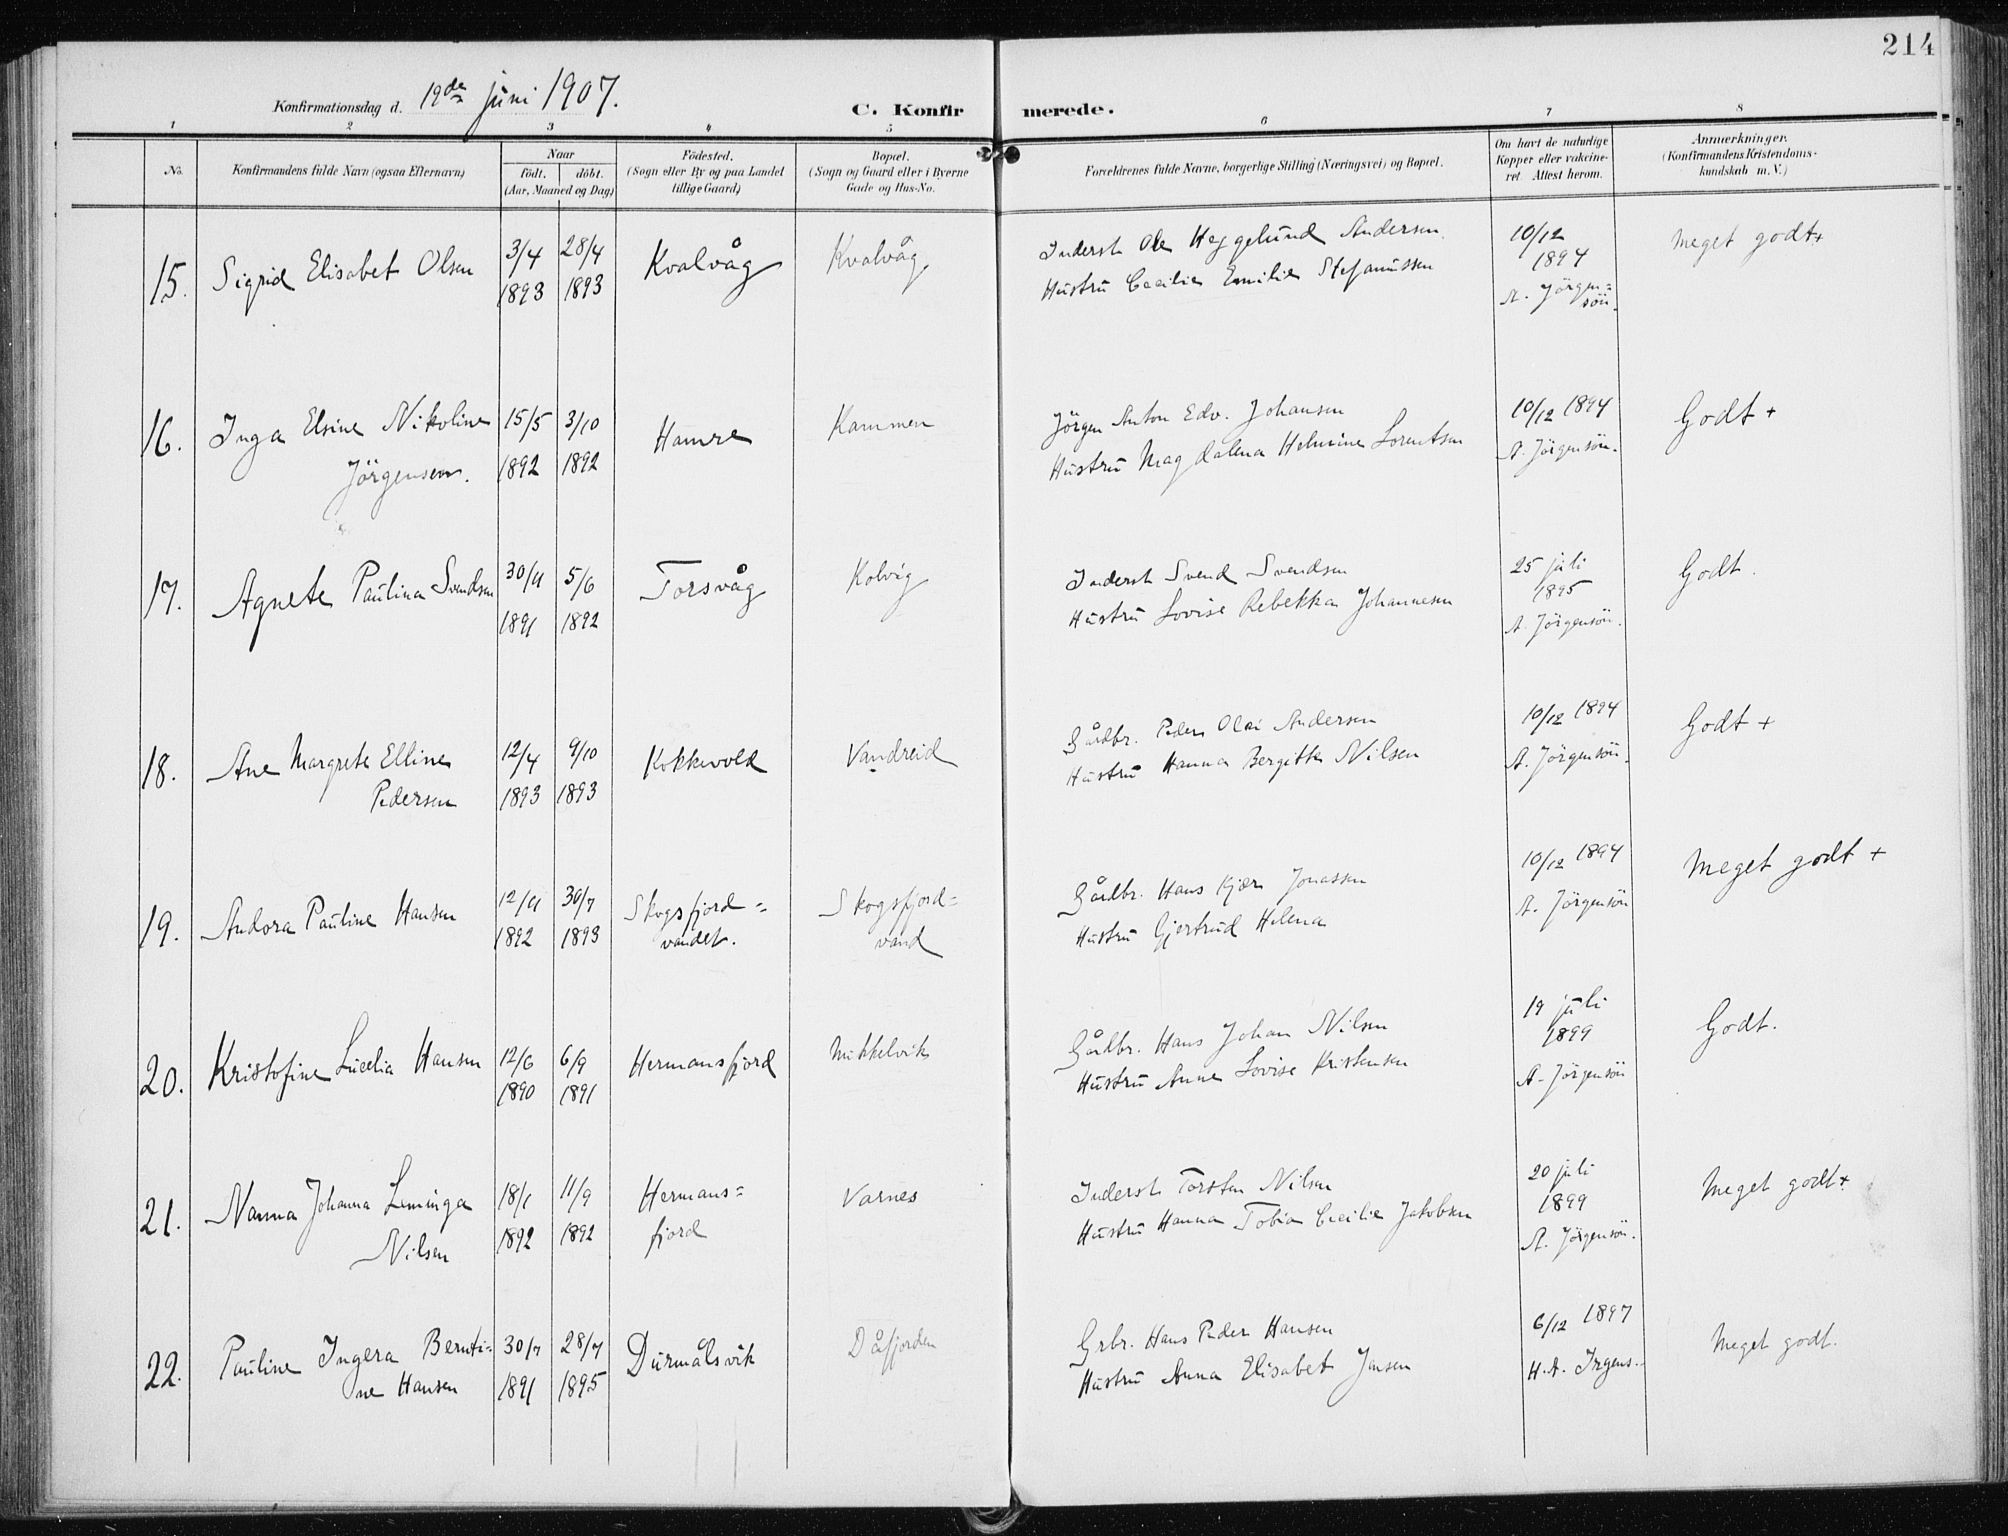 214
Konfirmationsdag d. 19de juni 1907.
C. Konfirmerede.
1 2 3 4 5 6 7 8
No.
Konfirmandens fulde Navn (ogsaa Efternavn)
Naar
født. døbt.
(Aar, Maaned og Dag)
Fødested.
(Sogn eller By og paa Landet
tillige Gaard)
Bopæl.
(Sogn og Gaard eller i Byerne
Gade og Hus-No.
Forældrenes fulde Navne, borgerlige Stilling (Næringsvei) og Bopæl.
Om havt de naturlige
Kopper eller vakcine-
ret. Attest herom.
Anmærkninger.
(Konfirmandens Kristendoms-
kundskab m. V.)
15. Sigrid Elisabet Olsen
3/4 28/4
1893 1893
Kvalvåg
Kvalvåg
Inderst Ole Heggelund Andersen
Hustru Cecilie Emilie Stefanussen
10/12
1894
A. Jörgen=
sön.
Meget godt+
16. Inga Elsine Nikoline
Jörgensen.
15/5 3/10
1892 1892
Hamre
Kammen
Jörgen Anton Edv. Johansen
Hustru Magdalena Helmine Lorentsen
10/12 1894
A. Jörgensön.
Godt +
17. Agnete Paulina Svendsen
30/11 5/6
1891 1892
Torsvåg
Kolvig
Inderst Svend Svendsen
Hustru Lovise Rebekka Johannesen
25 juli
1895
A. Jörgensön.
Godt.
18. Ane Margrete Elline
Pedersen
12/4 9/10
1893 1893
Kokkevold
Vandreid
Gårdbr. Peder Olai Andersen
Hustru Hanna Bergitte Nilsen
10/12 1894
A. Jörgensön.
Godt +
19. Andora Pauline Hansen
12/11 30/7
1892 1893
Skogsfjord=
vandet.
Skogsfjord=
vand
Gårdbr. Hans Kjær Jonassen
Hustru Gjertrud Helena
10/12 1894
A. Jörgensön
Meget godt +
20. Kristofine Lucelia Hansen
12/6 6/9
1890 1891
Hermansfjord
Mikkelvik
Gårdbr. Hans Johan Nilsen
Hustru Anne Lovise Kristensen
19 juli
1899
A. Jörgensön
Godt.
21. Nanna Johanna Leminga
Nilsen
18/1 11/9
1892 1892
Hermans=
fjord
Varnes
Inderst Torsten Nilsen
Hustru Hanna Tobia Cecilie Jakobsen
20 juli
1899
A. Jörgensön.
Meget godt+
22. Pauline Ingera Bernti=
ne Hansen
30/7 28/7
1891 1895
Durmålsvik
Dåfjorden
Grbr. Hans Peder Hansen
Hustru Anna Elisabet Jensen
6/12 1897
H. A. Irgens.
Meget godt.